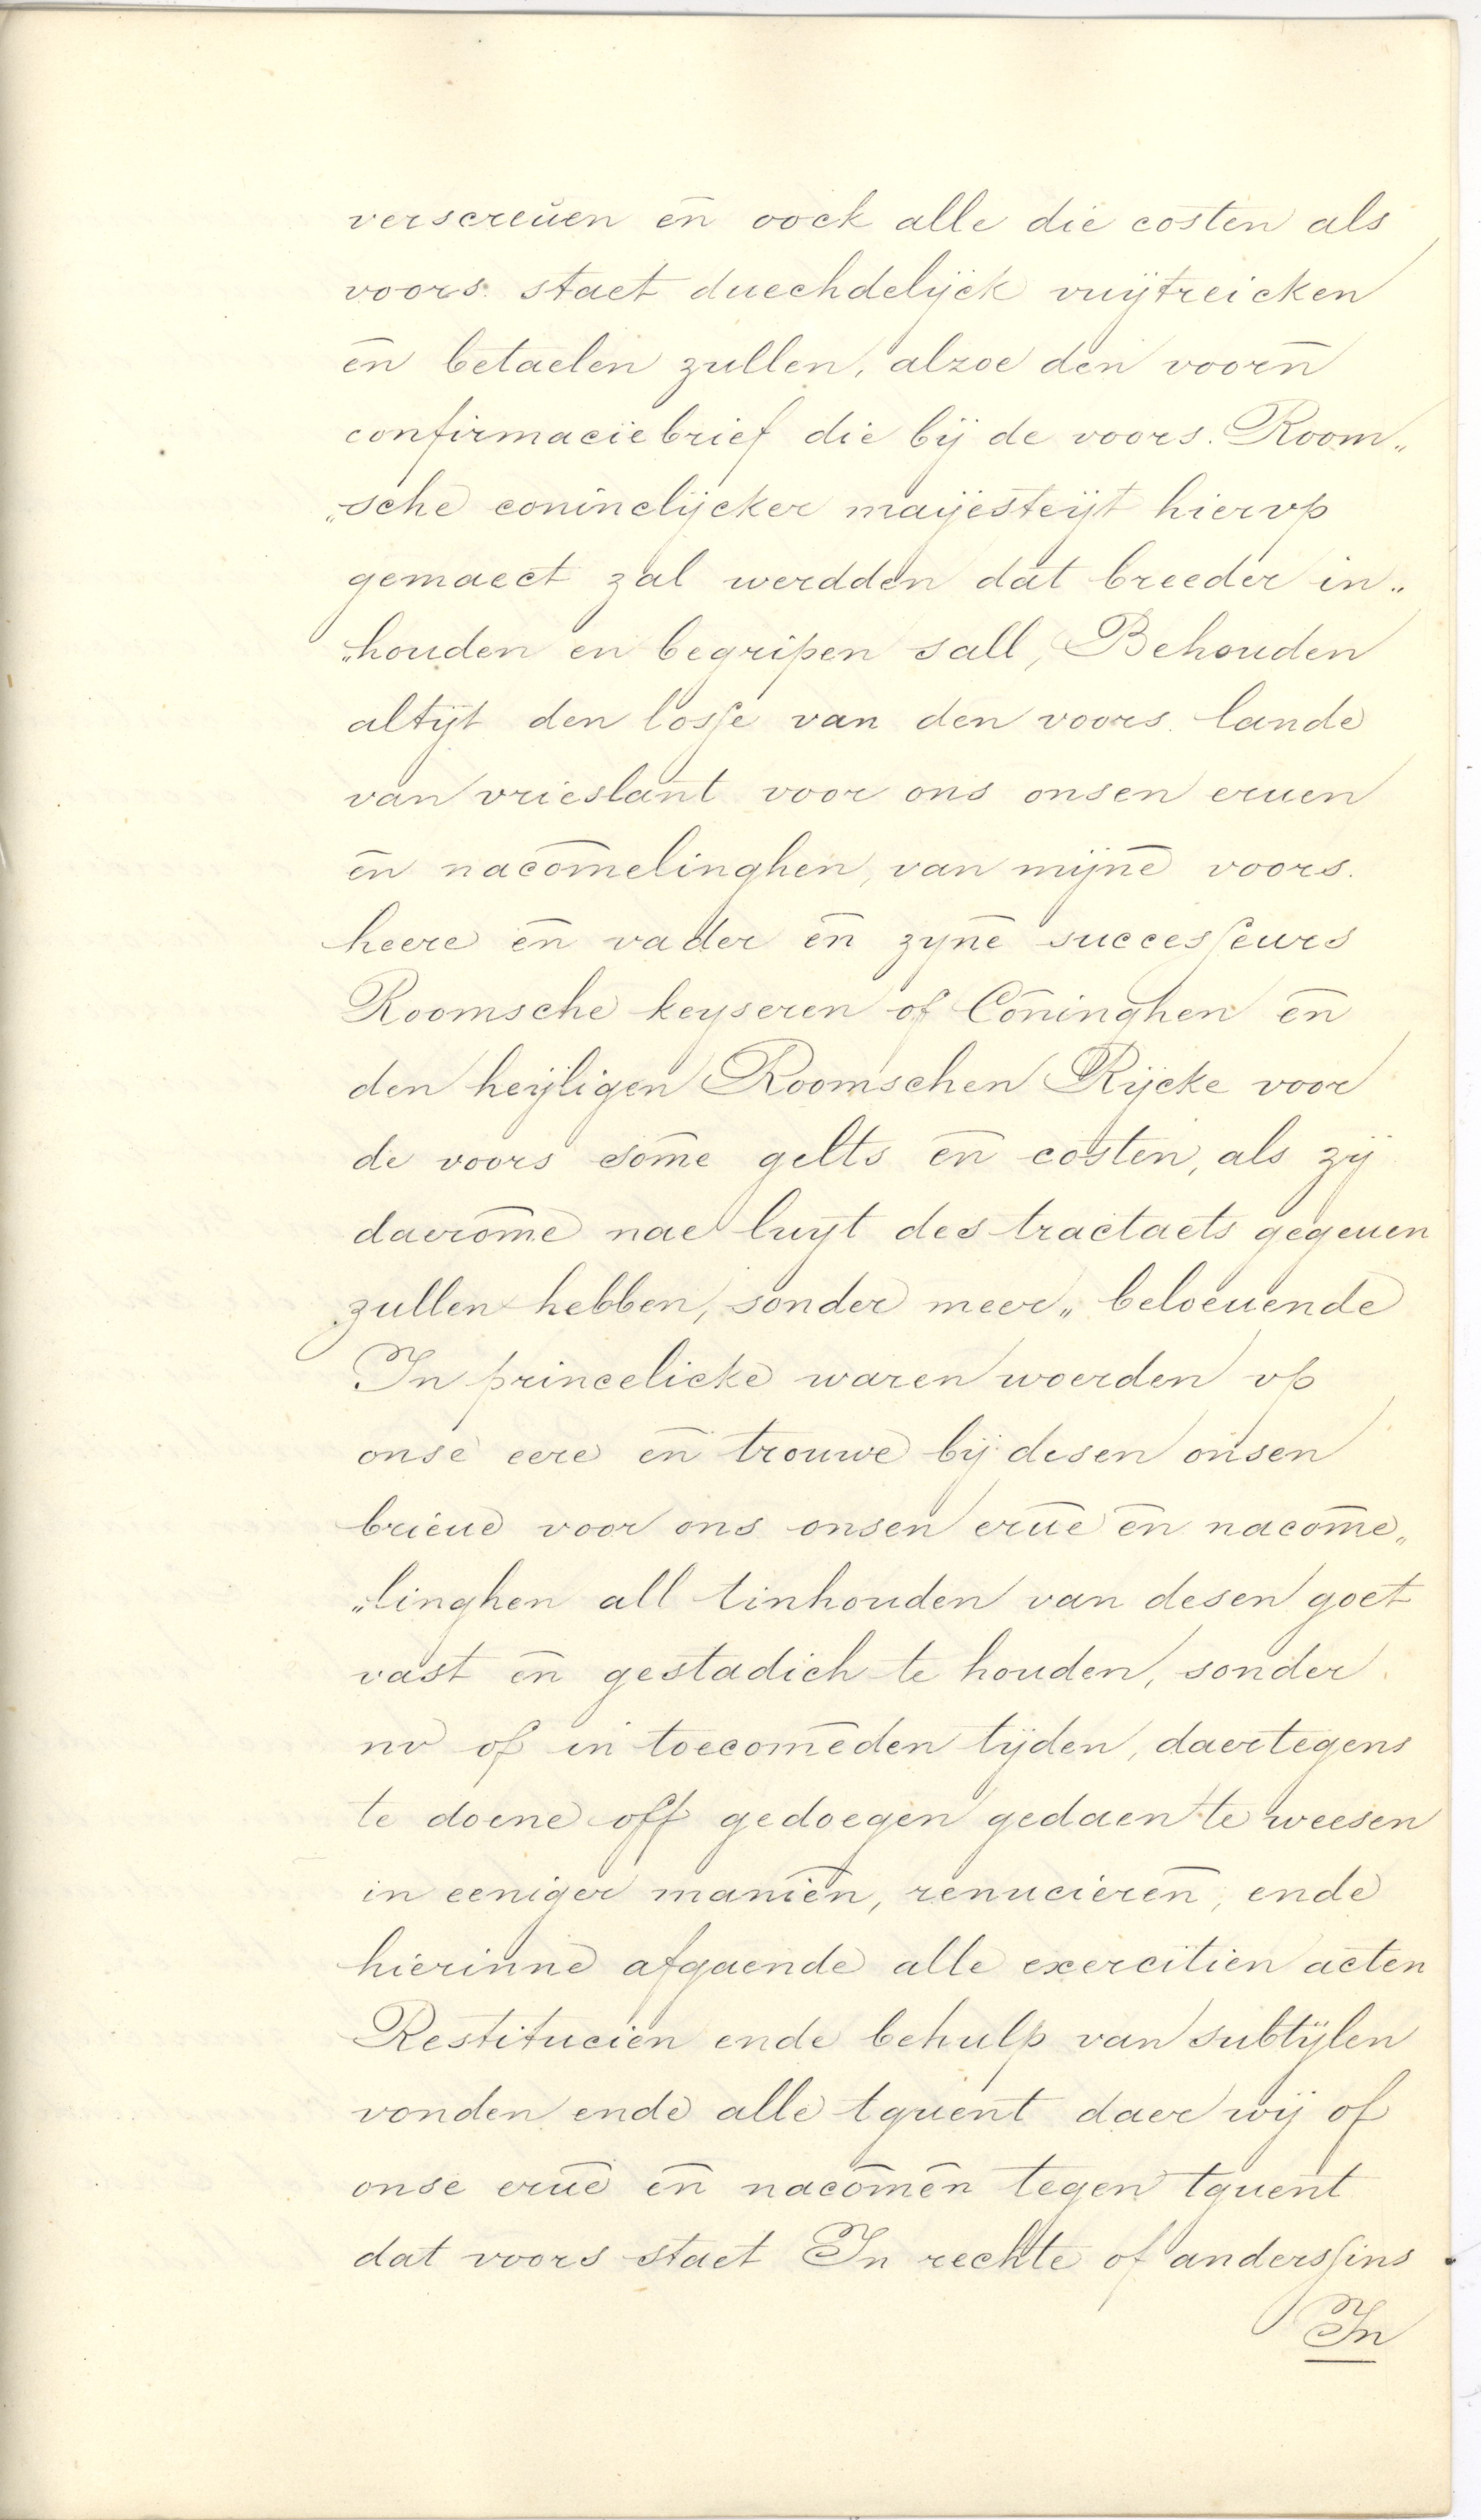 verscreuen en̄ oock alle die costen als
voors. staet duechdelijck vuijtreicken
en̄ betaelen zullen, alzoe den voorn̄
confirmaciebrief die bij de voors. Room„
„sche coninclijcker maijesteijt hierop
gemaect zal werdden dat breeder in„
„houden en begripen sall, Behouden
altijt den losse van den voors. lande
van vrieslant voor ons onsen eruen
en̄ nacom̄elinghen, van mijne̅ voors.
heere en̄ vader en̄ zyne̅ successeurs
Roomsche keyseren of Coninghen en̄
den heijligen Roomschen Rijcke voor
de voors som̄e gelts en̄ costen, als zij
daerom̄e nae luijt des tractaets gegeuen
zullen hebben, sonder meer„ beloeuende
In princelicke waren woerden op
onse eere en̄ trouwe bij desen onsen
brieue voor ons onsen erue̅ en̄ nacom̄e„
„linghen all tinhouden van desen goet
vast en̄ gestadich te houden, sonder
nv of in toecome̅den tijden, daertegens
te doene off gedoegen gedaen te weesen
in eeniger manien̄, renucieren̄, ende
hierinne afgaende alle exercitien acten
Restitucien ende behulp van subtijlen
vonden ende alle tguent daer wij of
onse erue̅ en̄ nacom̄en̄ tegen tguent
dat voors staet In rechte of anderssins
In